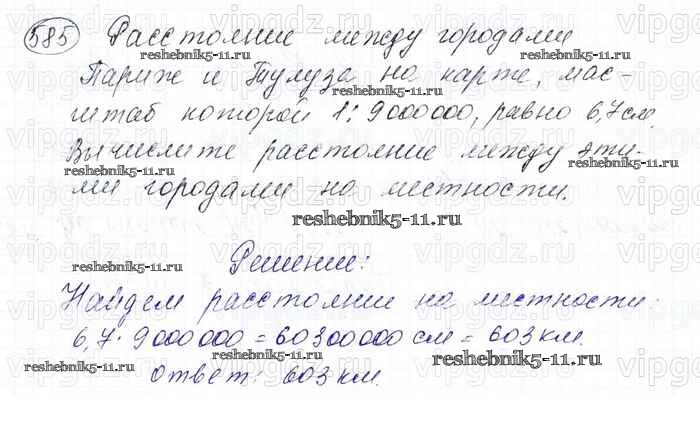 585 Расстояние между городами
reshebnik5-11.ru
Париж и Тулуза на карте, мас-
reshebnik5-11.ru
штаб которой 1:9000000, равно 6,7 см.
reshebnik5-11.ru
Вычислите расстояние между эти-
reshebnik5-11.ru reshebnik5-11.ru
ми городами на местности.
reshebnik5-11.ru
Решение:
reshebnik5-11.ru
Найдем расстояние на местности:
6,7·9000000=60300000 см = 603 км.
reshebnik5-11.ru reshebnik5-11.ru reshebnik5-11.ru
Ответ: 603 км.
vipgdz.ru